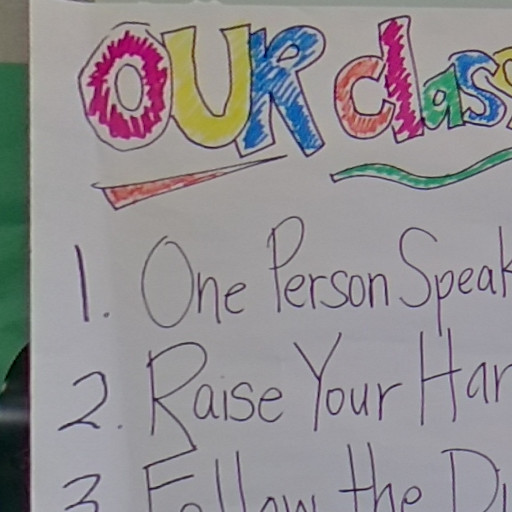 OUR class
1. One Person Speak
2. Raise Your Har
3. Follow the Di